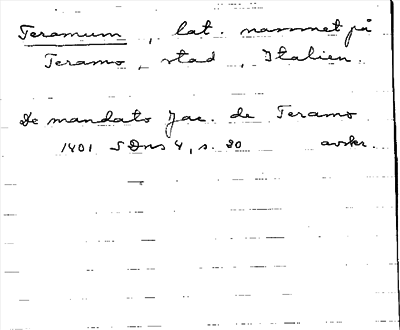 Teramum, lat. namnet på
Teramo, stad, Italien.
De mandato Jac. de Teramo
1401 SDns 4, s. 30 avskr.